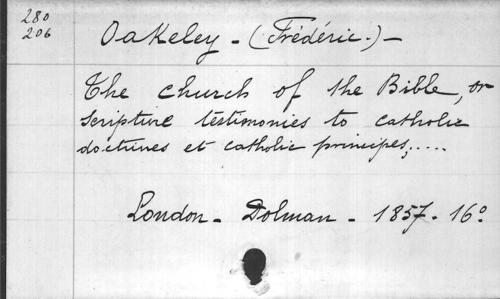 280
206
Oakeley - (Frédéric.) -
The church of the Bible, or
Scripture testimonies to catholic
doctrines et catholic principes,....
London - Dolman - 1857 - 16º